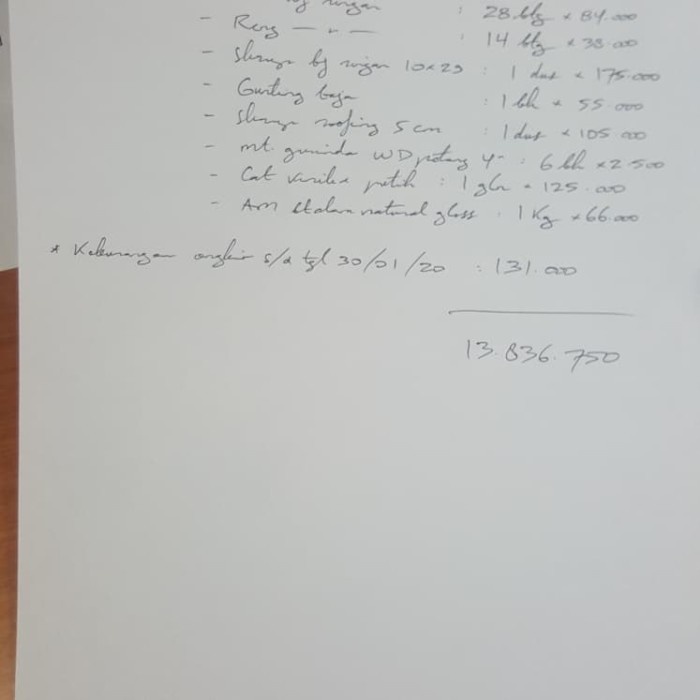 bj ringan : 28 btg x 84.000
- Reng — " — : 14 btg x 38.000
- Skrup bj ringan 10x23 : 1 dus x 175.000
- Gunting baja : 1 bh x 55.000
- Skrup roofing 5 cm : 1 dus x 105.000
- mt. gurinda WD potong 4" : 6 bh x 2.500
- Cat putih : 1 gln x 125.000
- natural gloss : 1 Kg x 66.000
* Kekurangan ongkir s/d tgl 30/01/20 : 131.000
13.836.750